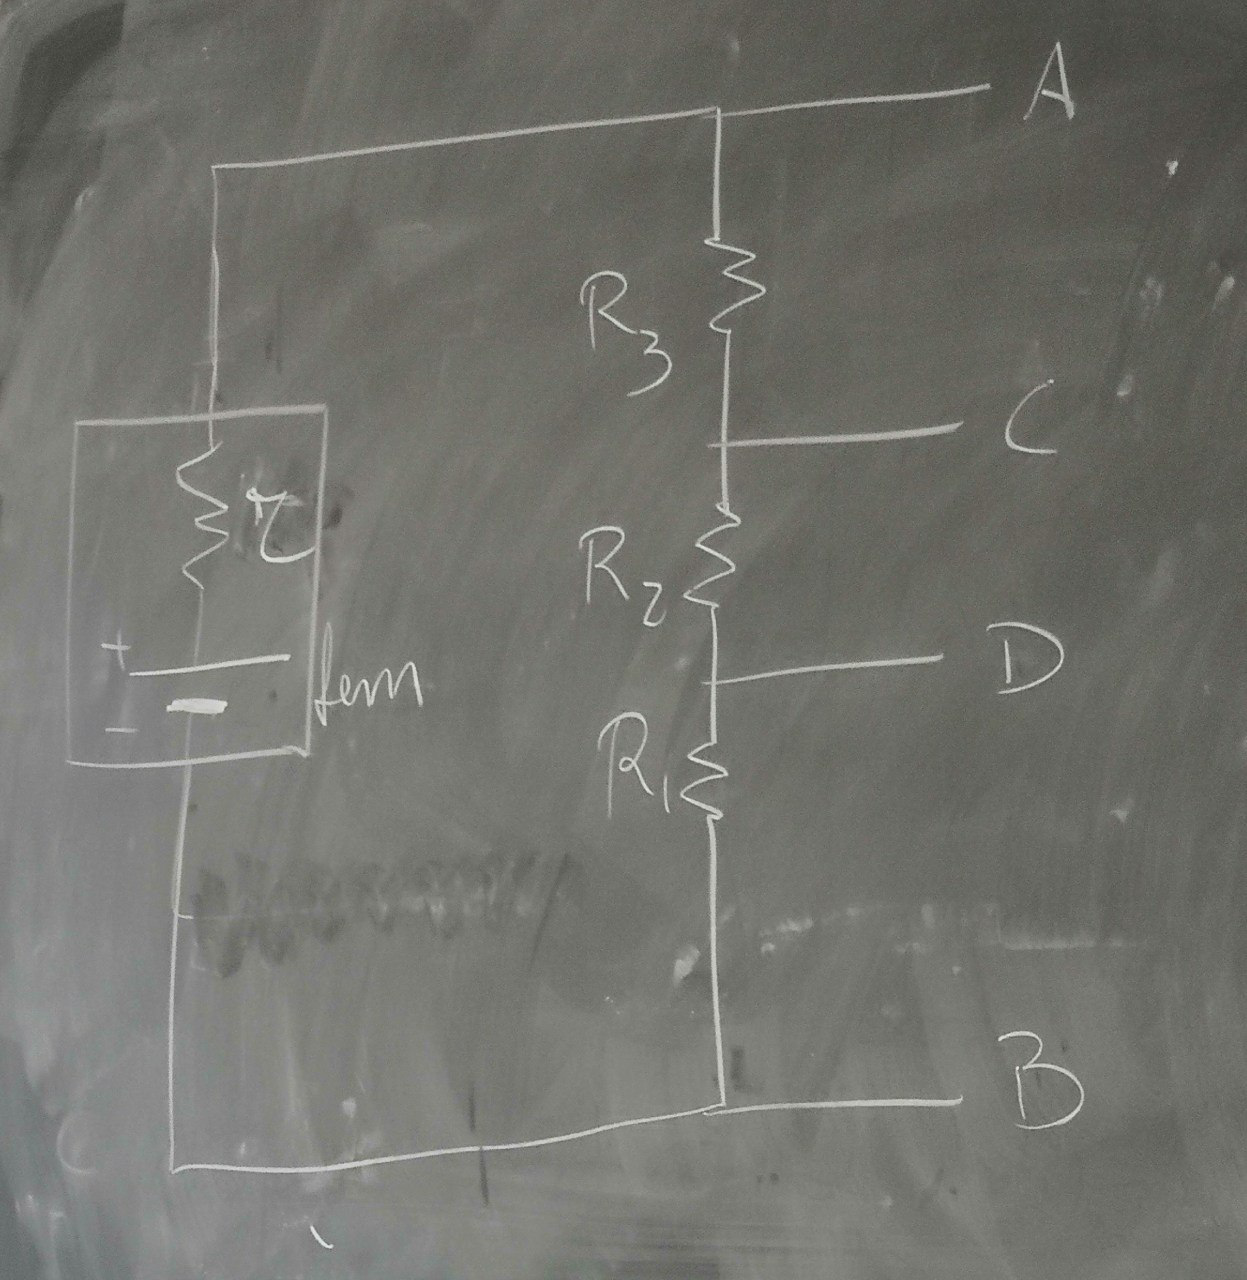 A
R3
C
r
R2
D
+
fem
-
R1
B